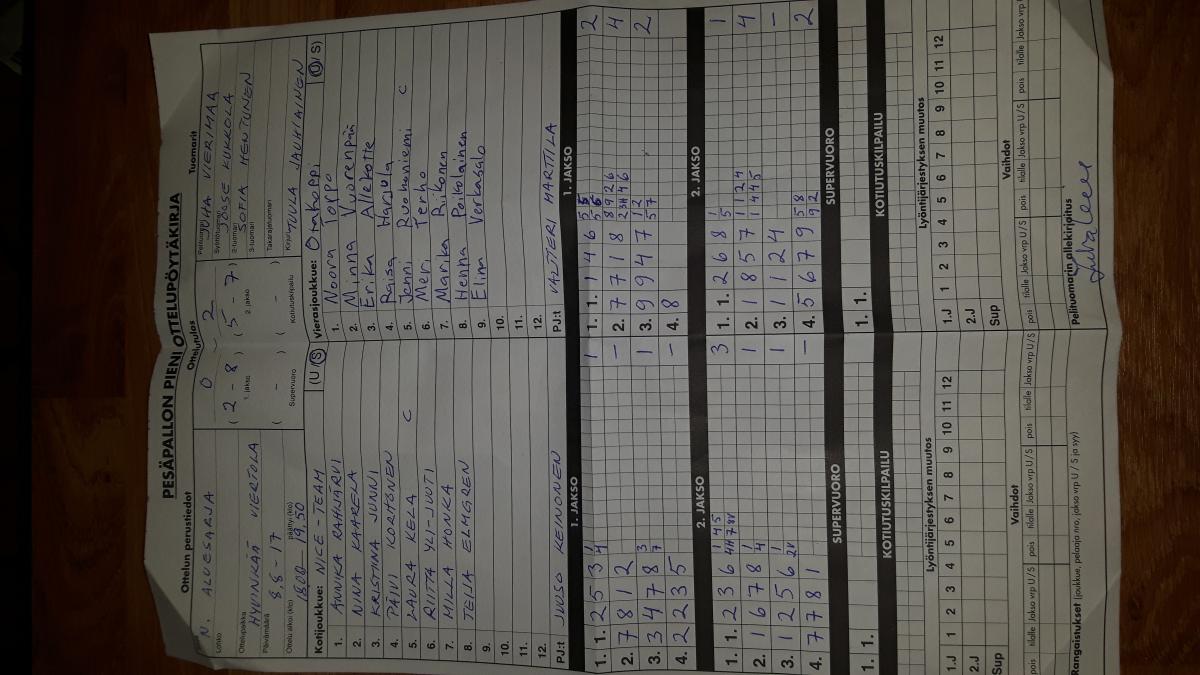 PESÄPALLON PIENI OTTELUPÖYTÄKIRJA
Ottelun perustiedot
Ottelutulos
Tuomarit
N. ALUESARJA
Lohko
0 - 2
Pelituomari JUHA VIERIMAA
Ottelupaikka
HYVINKÄÄ VIERTOLA
(2 - 8) (5 - 7)
1. jakso 2. jakso
Syöttötuomari
2-tuomari
3-tuomari
SOFIA HENTUNEN
Päivämäärä
8,8 - 17
Takarajatuomari
Ottelu alkoi (klo) päättyi (klo)
1800 19,50
( - ) ( - )
Supervuoro Kotiutuskilpailu
Kirjuri TUULA JAUHIAINEN
Kotijoukkue: NICE-TEAM (U/S)
1. ANNIKA RAHIJÄRVI
2. NINA KAARELA
3. KRISTIINA JUNKI
4. PÄIVI KORHONEN
5. LAURA KELA C
6. RIITTA YLI-JUOTI
7. MILLA HONKA
8. TEIJA ELMGREN
9.
10.
11.
12.
PJ:t JUUSO KEINONEN
Vierasjoukkue: (U/S)
1. Noora Toppo
2. Minna Vuorenpää
3. Erika
4. Raisa Harjula
5. Jenni Ruohoniemi C
6. Meri Terho
7. Marika Rikonen
8. Henna Paikolainen
9. Elina Verkasalo
10.
11.
12.
PJ:t VALTTERI MARTTILA
1. JAKSO
1. 1. 2 5 3 1 4 1
2. 7 8 1 2 -
3. 3 4 7 8 3 7 1
4. 2 2 3 5 -
1. JAKSO
1. 1. 1 4 6 5 5 5 6 2
2. 7 7 1 8 8 9 2 6 4
3. 9 9 4 7 1 2 5 7 2
4. 8
2. JAKSO
1. 1. 2 3 6 1 4 5 3
2. 1 6 7 8 1 4 1
3. 1 2 5 6 1
4. 7 7 8 1 -
2. JAKSO
1. 1. 2 6 8 1 5 1
2. 1 8 5 7 1 1 2 4 1 4 4 5 4
3. 1 1 2 4 -
4. 5 6 7 9 5 8 9 2 2
SUPERVUORO
1. 1.
SUPERVUORO
1. 1.
KOTIUTUSKILPAILU
KOTIUTUSKILPAILU
Lyöntijärjestyksen muutos
1 2 3 4 5 6 7 8 9 10 11 12
1.J
2.J
Sup
Lyöntijärjestyksen muutos
1 2 3 4 5 6 7 8 9 10 11 12
1.J
2.J
Sup
Vaihdot
pois tilalle Jakso vrp U/S pois tilalle Jakso vrp U/S pois tilalle Jakso vrp U/S
Vaihdot
pois tilalle Jakso vrp U/S pois tilalle Jakso vrp U/S pois tilalle Jakso vrp
Rangaistukset (joukkue, pelaaja nro, jakso vrp U / S ja syy)
Pelituomarin allekirjoitus